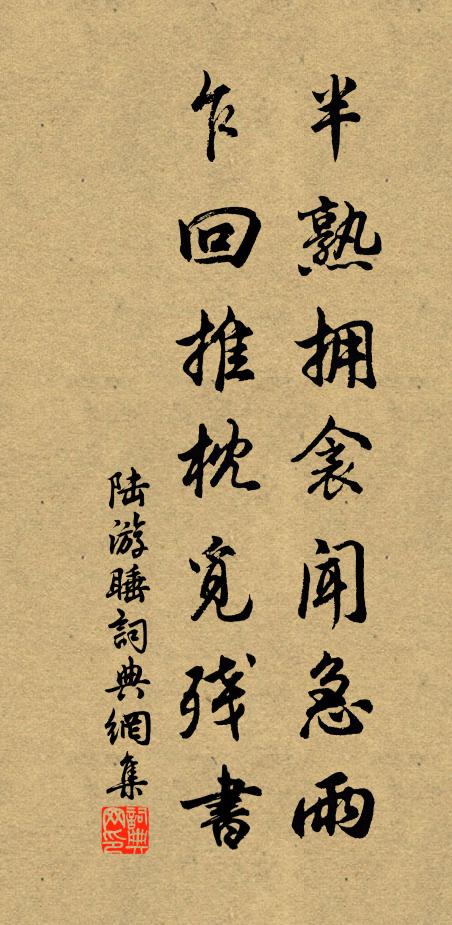 半熟拥衾闻急雨
乍回推枕觅残書
陆游睡詞典網集
詞典
网印